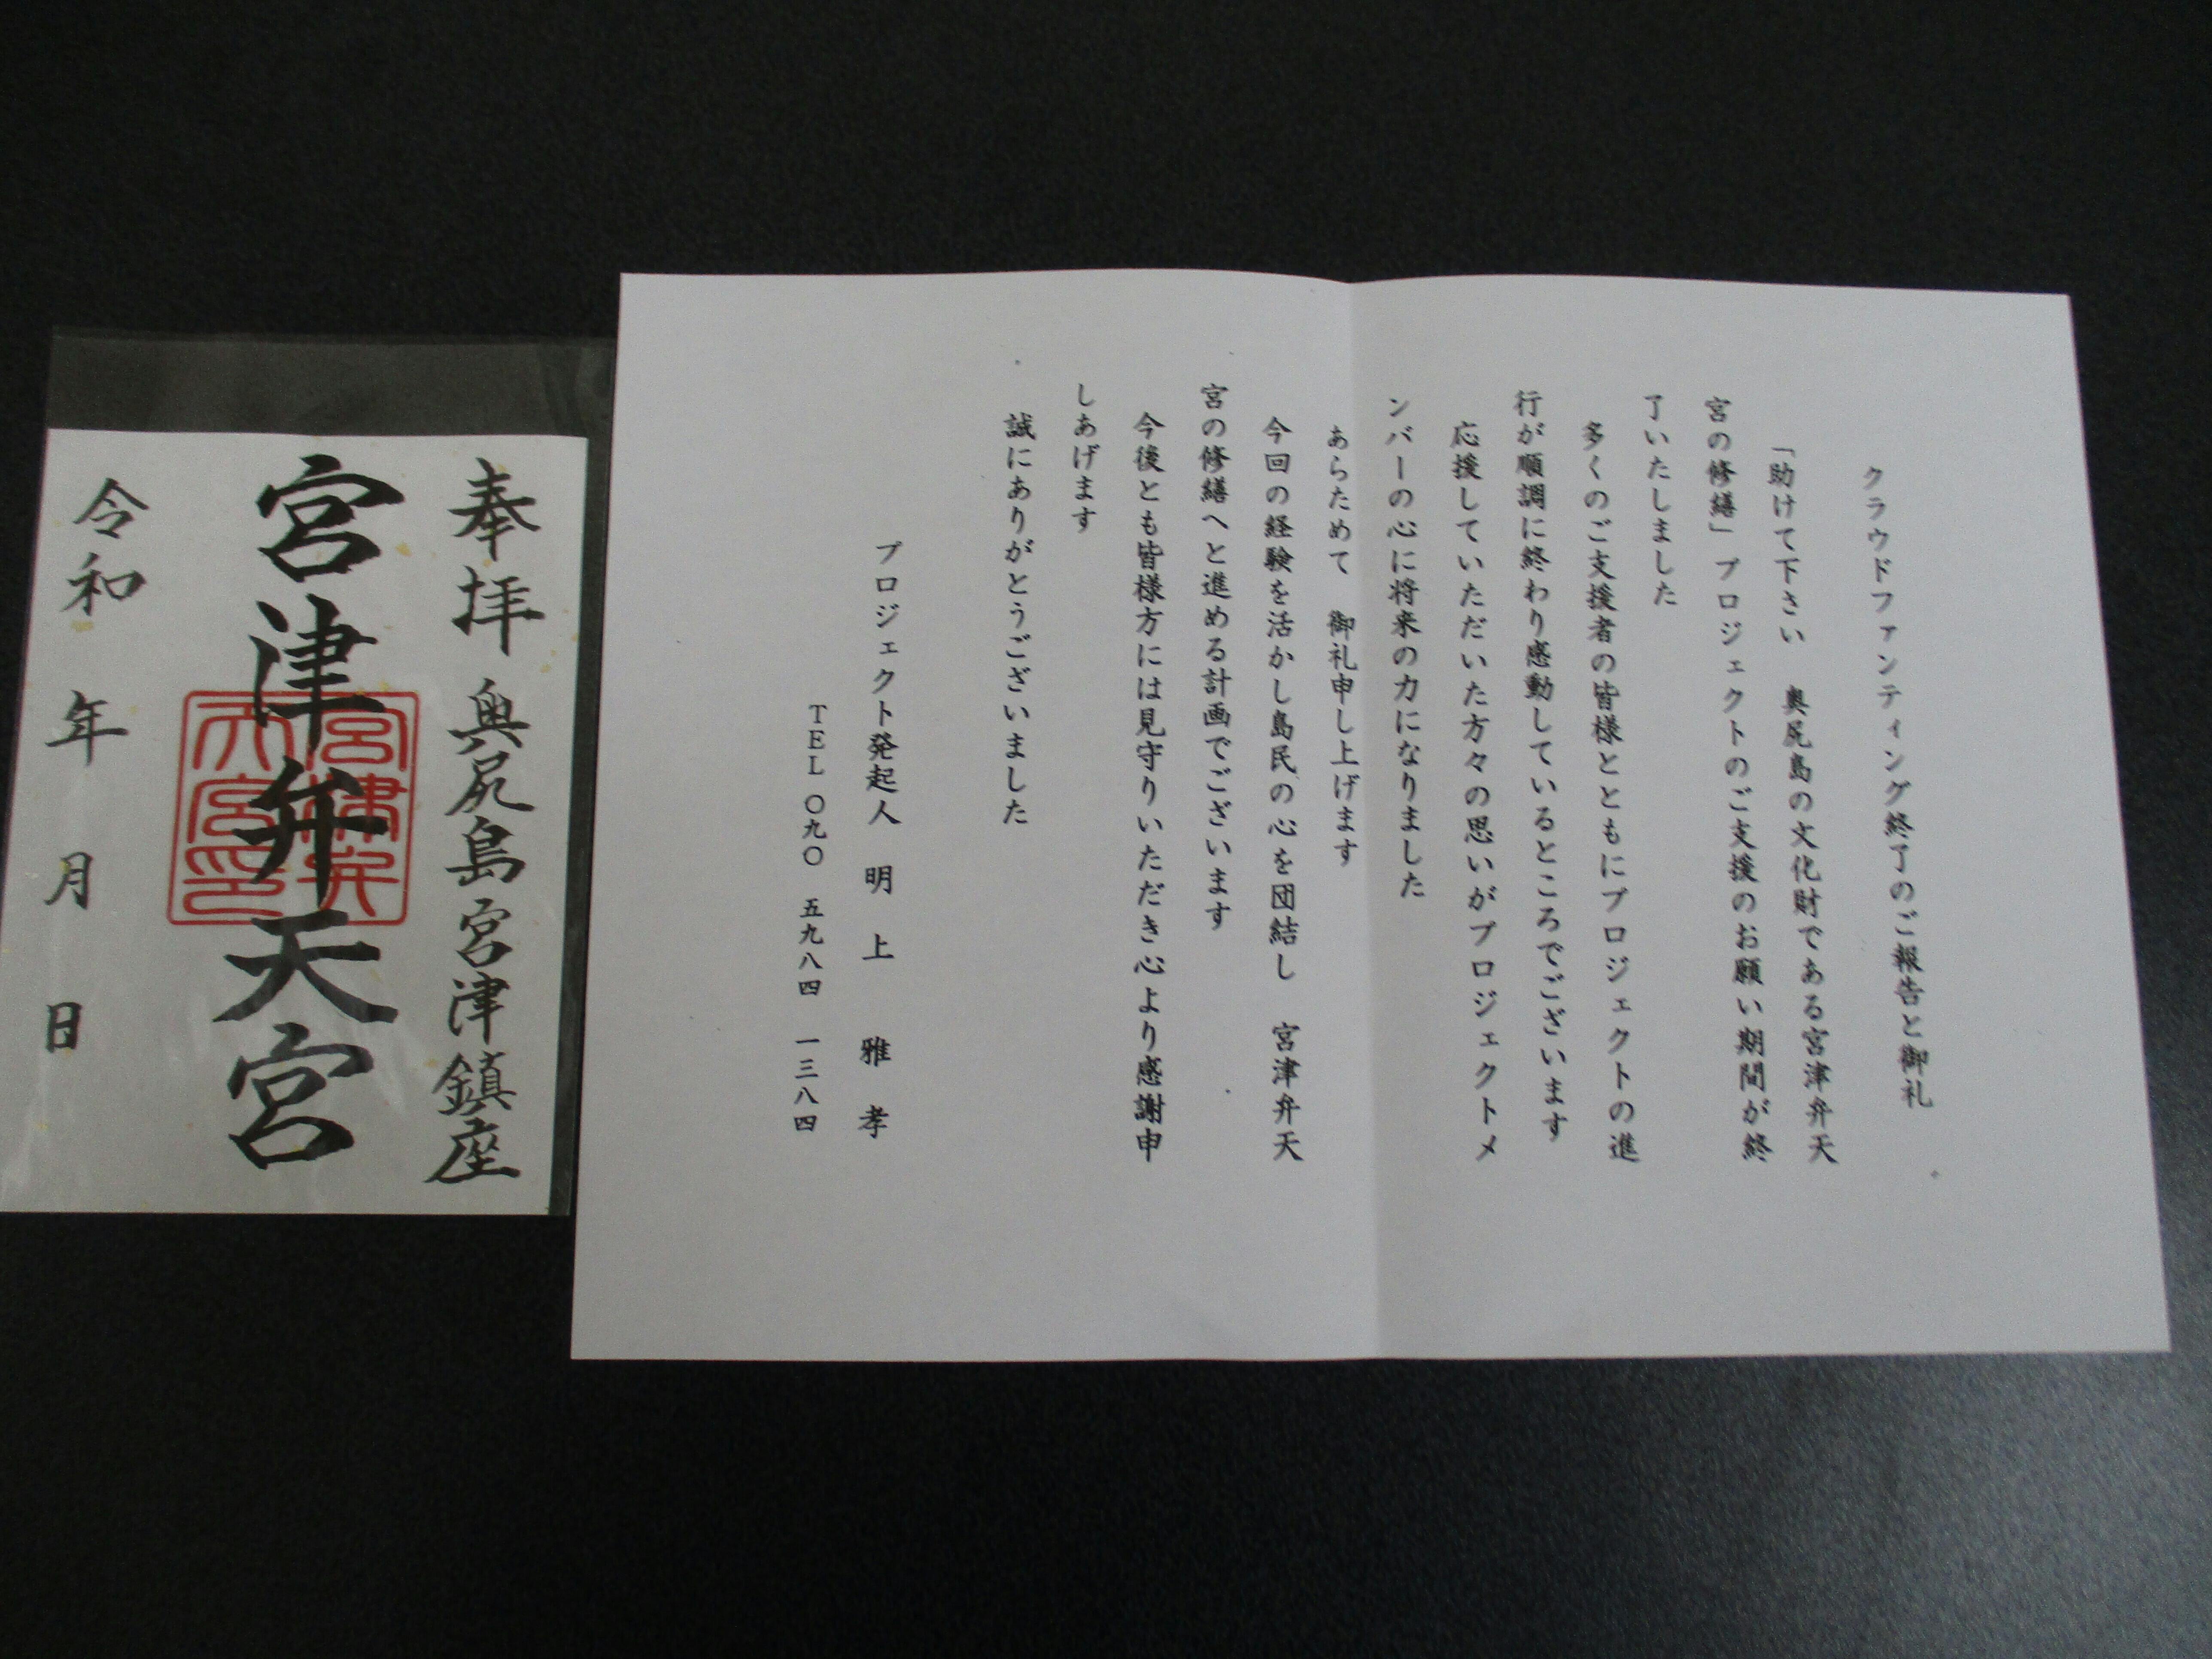 クラウドファンティング終了のご報告と御礼
「助けて下さい　奥尻島の文化財である宮津弁天
宮の修繕」プロジェクトのご支援のお願い期間が終
了いたしました
多くのご支援者の皆様とともにプロジェクトの進
行が順調に終わり感動しているところでございます
応援していただいた方々の思いがプロジェクトメ
ンバーの心に将来の力になりました
あらためて　御礼申し上げます
今回の経験を活かし島民の心を団結し　宮津弁天
宮の修繕へと進める計画でございます
今後とも皆様方には見守りいただき心より感謝申
しあげます
誠にありがとうございました
プロジェクト発起人　明　上　雅　孝
TEL　〇九〇　五九八四　一三八四
奉拝　奥尻島宮津鎮座
宮津弁天宮
宮津弁
天宮印
令和　年　月　日